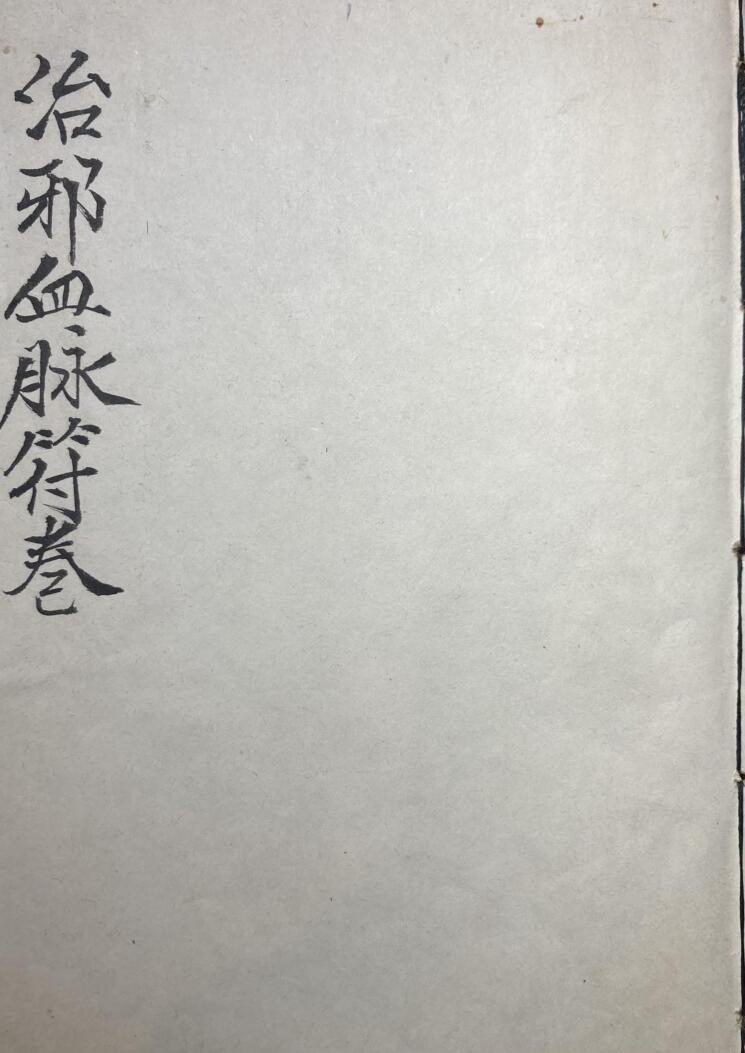 治邪血脉符巻